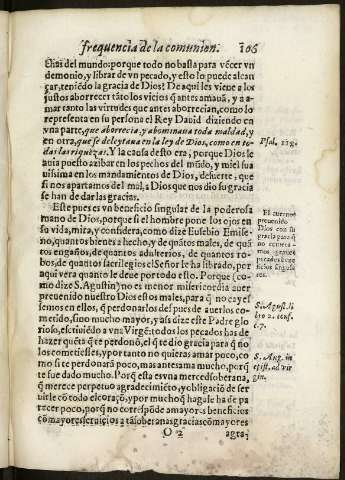 frequencia de la comunion. 106
dias del mundo: porque todo no basta para vẽcer vn
demonio, y librar de vn pecado, y esto lo puede alcan
çar, teniẽdo la gracia de Dios? De aqui les viene a los
justos aborrecer tãto los vicios q̃ antes amauã, y a a-
mar tanto las virtudes que antes aborrecian, como lo
representa en su persona el Rey Dauid diziendo en
vna parte, que aborrecia, y abominaua toda maldad, y
en otra, que se deleytaua en la ley de Dios, como en to-
das las riquezas. Y la causa desto era, porque Dios le
auia puesto azibar en los pechos del mũdo, y miel sua
uissima en los mandamientos de Dios, de suerte, que
si nos apartamos del mal, a Dios que nos dio su gracia
se han de dar las gracias.
Este pues es vn beneficio singular de la poderosa
mano de Dios, porque si el hombre pone los ojos en
su vida, mira, y considera, como dize Eusebio Emise-
no, quantos bienes a hecho, y de quãtos males, de quã
tos engaños, de quantos adulterios, de quantos ro-
bos, de quãtos sacrilegios el Señor le ha librado, por
aqui vera quanto le deue por todo esto. Porque (co-
mo dize S. Agustin) no es menor misericordia auer
preuenido nuestro Dios estos males, para q̃ no cayes
semos en ellos, que perdonarlos despues de auerlos co-
metido, sino mucho mayor, y assi dize este Padre glo
rioso, escriuiẽdo a vna Virgẽ: todos los pecados has de
hazer quẽta que te perdonò, el q̃ te dio gracia para q̃ no
los cometiesses, y por tanto no quieras amar poco, co-
mo si te perdonarà poco, mas antes ama mucho, porq̃
te fue dado mucho. Porq̃ esta es vna merced soberana,
q̃ merece perpetuo agradecimiẽto, y obligaciõ de ser
uirle cõ todo el coraçõ, y por mucho q̃ haga le ha de pa
recer poco, porq̃ no correspõde a mayores beneficios
cõ mayores seruicios, y a tã soberanas gracias cõ mayores
O 2 agra-
Psal. 118.
El auernos
preuenido
Dios con su
gracia para q̃
no cometa-
mos graues
pecados es be
neficio singular
S. Agust. li
bro 2. conf.
c. 7.
S. Aug. in
epist. ad vir
gin.